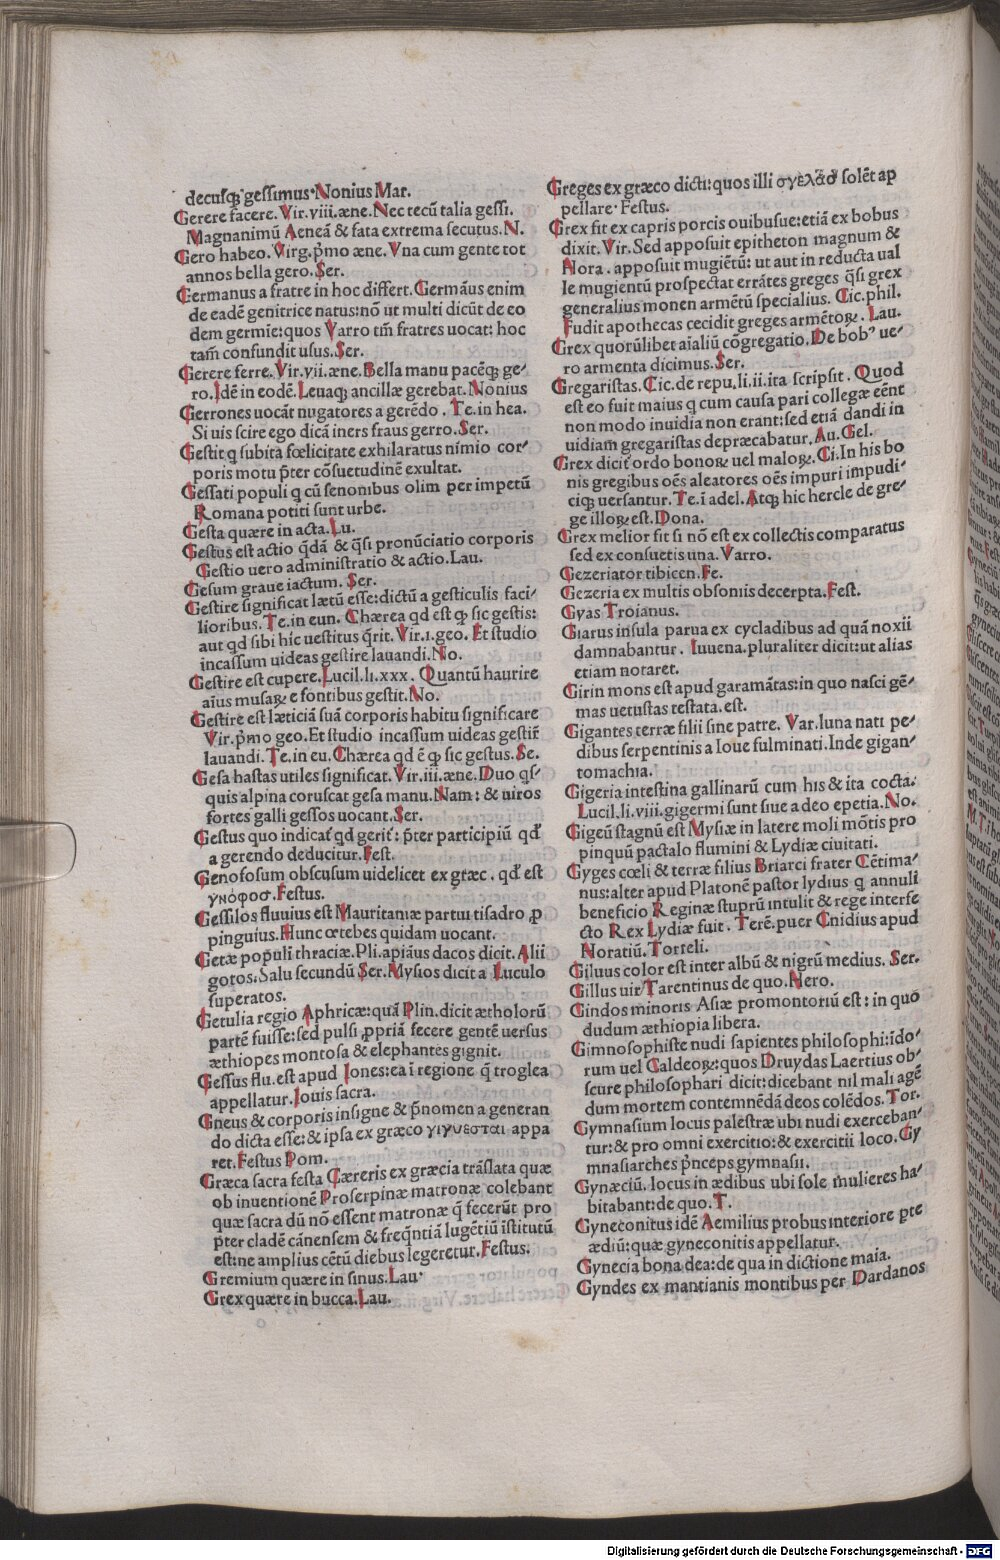 decusq; gessimus. Nonius Mar.
Gerere facere. Vir. viii. æne. Nec tecū talia gessi.
Magnanimū Aeneā & fata extrema secutus. N.
Gero habeo. Virg. p̄mo æne. Vna cum gente tot
annos bella gero. Ser.
Germanus a fratre in hoc differt. Germāus enim
de eadē genitrice natus: nō ut multi dicūt de eo
dem germie: quos Varro tm̄ fratres uocat: hoc
tam̄ confundit usus. Ser.
Gerere ferre. Vir. vii. æne. Bella manu pacēq; ge-
ro. Idē in eodē. Leuaq; ancillæ gerebat. Nonius
Gerrones uocāt nugatores a gerēdo. Te. in hea.
Si uis scire ego dicā iners fraus gerro. Ser.
Gestit q subita fœlicitate exhilaratus nimio cor-
poris motu p̄ter cōsuetudinē exultat.
Gessati populi q cū senonibus olim per impetū
Romana potiti sunt urbe.
Gesta quære in acta. Lu.
Gestus est actio qdā & q̄si pronūciatio corporis
Gestio uero administratio & actio. Lau.
Gesum graue iactum. Ser.
Gestire significat lætū esse: dictū a gesticulis faci-
lioribus. Te. in eun. Chærea qd est q̨ sic gestis:
aut qd sibi hic uestitus q̄rit. Vir. i. geo. Et studio
incassum uideas gestire lauandi. No.
Gestire est cupere. Lucil. li. xxx. Quantū haurire
aīus musaꝝ e fontibus gestit. No.
Gestire est læticiā suā corporis habitu significare
Vir. p̄mo geo. Et studio incassum uideas gestir̄
lauandi. Te. in eu. Chærea qd ē q̨ sic gestus. Se.
Gesa hastas utiles significat. Vir. iii. æne. Duo qs-
quis alpina coruscat gesa manu. Nam: & uiros
fortes galli gessos uocant. Ser.
Gestus quo indicat̄ qd gerit̄: p̄ter participiū qd
a gerendo deducitur. Fest.
Genofosum obscusum uidelicet ex græc. qd est
γνόφοσ. Festus.
Gessilos fluuius est Mauritaniæ partui tisadro ꝓ
pinguius. Hunc œtebes quidam uocant.
Getæ populi thraciæ. Pli. apiāus dacos dicit. Alii
gotos. Salu secundū Ser. Mysios dicit a Luculo
superatos.
Getulia regio Aphricæ: quā Plin. dicit ætholorū
partē fuisse: sed pulsi ꝓpriā fecere gentē uersus
æthiopes montosa & elephantes gignit.
Gessus flu. est apud Iones: ea ī regione q̄ troglea
appellatur. Iouis sacra.
Gneus & corporis insigne & p̄nomen a generan
do dicta esse: & ipsa ex græco γιγνεσται appa
ret. Festus Pom.
Græca sacra festa Cæreris ex græcia trāslata quæ
ob inuentionē Proserpinæ matronæ colebant
quæ sacra dū nō essent matronæ q̄ fecerūt pro
p̄ter cladē cānensem & freq̄ntiā lugētiū īstitutū
est: ne amplius cētū diebus legeretur. Festus.
Gremium quære in sinus. Lau.
Grex quære in bucca. Lau.
Greges ex græco dicti: quos illi σγελὰσ solēt ap
pellare. Festus.
Grex fit ex capris porcis ouibusue: etiā ex bobus
dixit. Vir. Sed apposuit epitheton magnum &
Nora. apposuit mugiētū: ut aut in reducta ual
le mugientū prospectat errātes greges q̄si grex
generalius monen armētū specialius. Cic. phil.
Fudit apothecas cecidit greges armētoꝝ. Lau.
Grex quorūlibet aīaliū cōgregatio. De bobꝰ ue-
ro armenta dicimus. Ser.
Gregaristas. Cic. de repu. li. ii. ita scripsit. Quod
est eo fuit maius q cum causa pari collegæ eēnt
non modo inuidia non erant: sed etiā dandi in
uidiam gregaristas depræcabatur. Au. Gel.
Grex dicit̄ ordo bonoꝝ uel maloꝝ. Ci. In his bo
nis gregibus oēs aleatores oēs impuri impudi-
ciq; uersantur. Te. ī adel. Atq; hic hercle de gre-
ge illoꝝ est. Dona.
Grex melior fit si nō est ex collectis comparatus
sed ex consuetis una. Varro.
Gezeriator tibicen. Fe.
Gezeria ex multis obsoniis decerpta. Fest.
Gyas Troianus.
Giarus insula parua ex cycladibus ad quā noxii
damnabantur. Iuuena. pluraliter dicit: ut alias
etiam notaret.
Girin mons est apud garamātas: in quo nasci gē-
mas uetustas testata. est.
Gigantes terræ filii sine patre. Var. luna nati pe-
dibus serpentinis a Ioue fulminati. Inde gigan-
tomachia.
Gigeria intestina gallinarū cum his & ita cocta.
Lucil. li. viii. gigermi sunt siue adeo epetia. No.
Gigeū stagnū est Mysiæ in latere moli mōtis pro
pinquū pactalo flumini & Lydiæ ciuitati.
Gyges cœli & terræ filius Briarci frater Cētima-
nus: alter apud Platonē pastor lydius q annuli
beneficio Reginæ stuprū intulit & rege interfe
cto Rex Lydiæ fuit. Terē. puer Cnidius apud
Noratiū. Torteli.
Giluus color est inter albū & nigrū medius. Ser.
Gillus uir Tarentinus de quo. Nero.
Gindos minoris Asiæ promontoriū est: in quo
dudum æthiopia libera.
Gimnosophiste nudi sapientes philosophi: ido-
rum uel Caldeoꝝ: quos Druydas Laertius ob-
scure philosophari dicit: dicebant nil mali agē
dum mortem contemnēdā deos colēdos. Tor.
Gymnasium locus palestræ ubi nudi exerceban-
tur: & pro omni exercitio: & exercitii loco. Gy
mnasiarches p̄nceps gymnasii.
Gynæciū. locus in ædibus ubi sole mulieres ha-
bitabant: de quo. T.
Gyneconitus idē Aemilius probus interiore pte
ædiū: quæ gyneconitis appellatur.
Gynecia bona dea: de qua in dictione maia.
Gyndes ex mantianis montibus per Dardanos
Digitalisierung gefördert durch die Deutsche Forschungsgemeinschaft - DFG